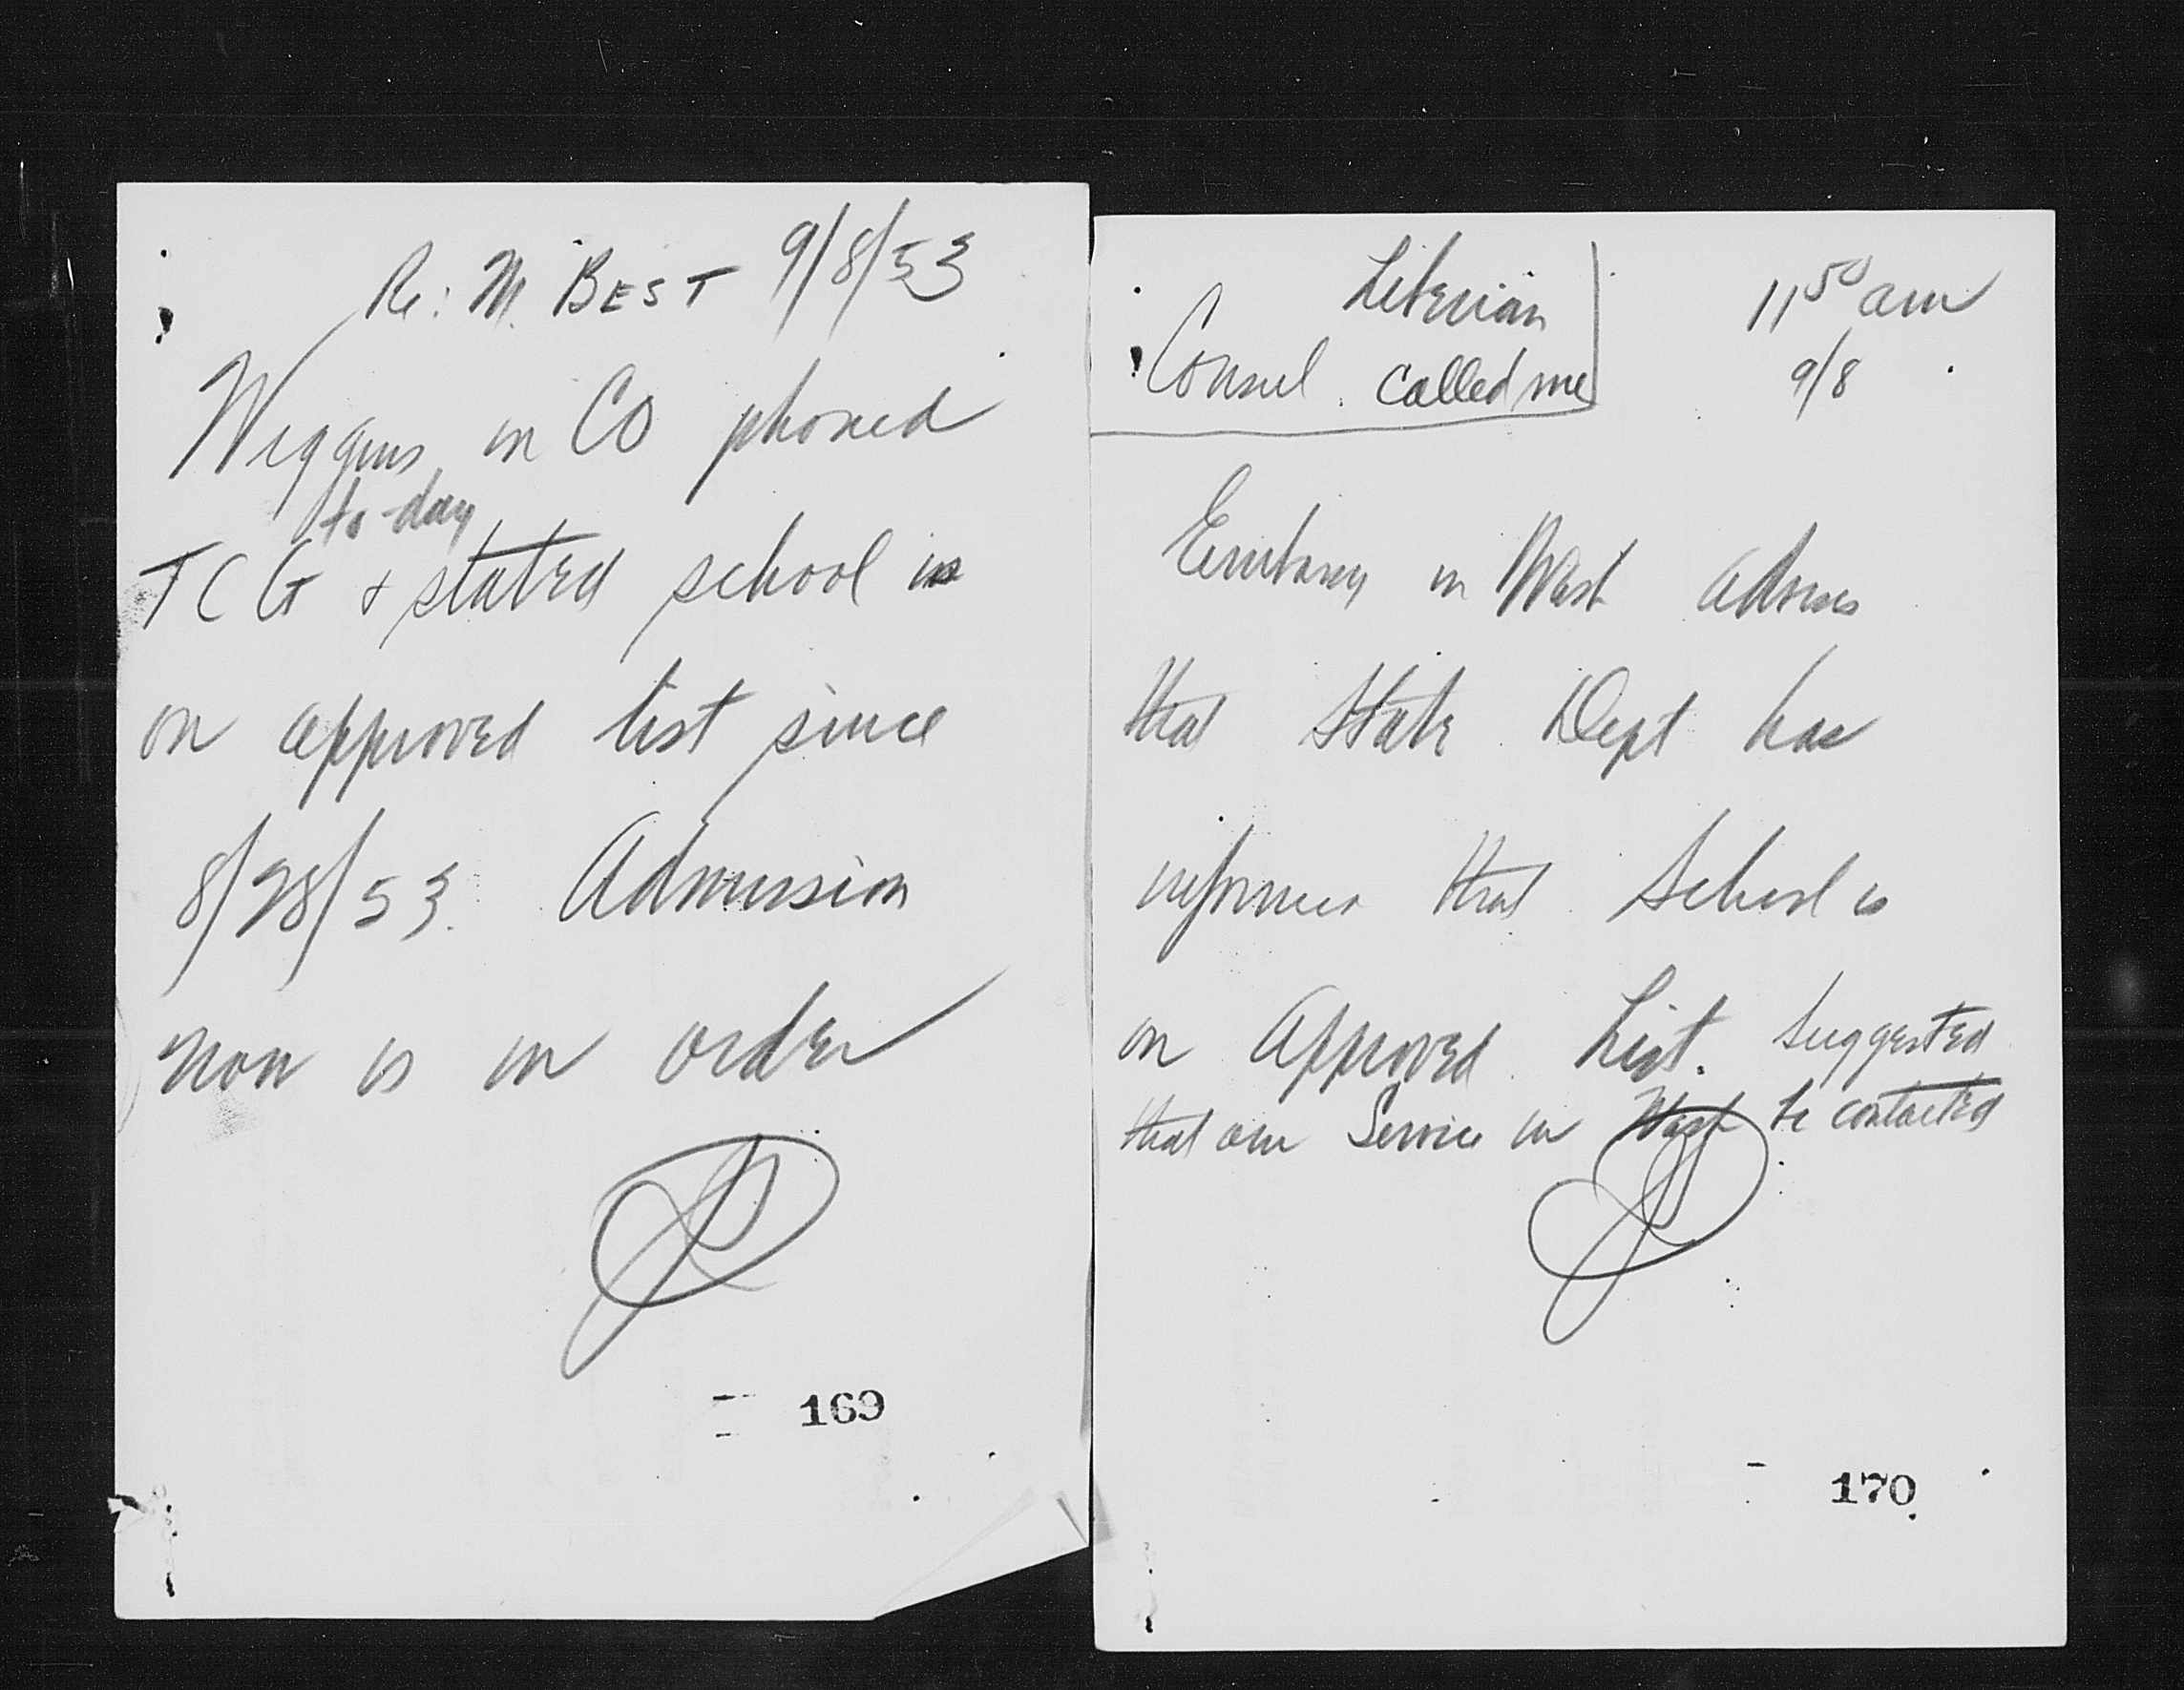 Re: M. BEST 9/8/53
Wiggins in CO phoned
to-day
TCG & stated school is
on approved list since
8/28/53. Admission
now is in order
169
Liberian
Consul called me
11 50 am
9/8
Embassy in Wash advises
that State Dept has
informed that School is
on Approved List. Suggested
that our Service in Wash be contacted
170